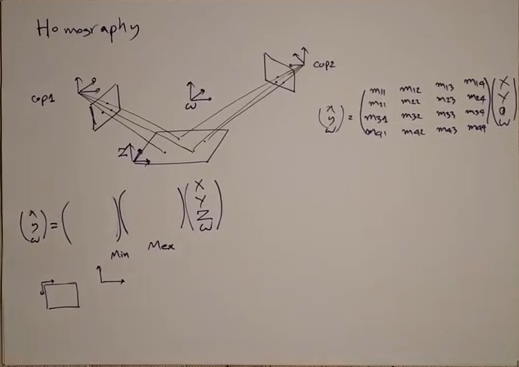 Homography
cop1
cop2
w
Z
(x y w) = (m11 m12 m13 m14
m21 m22 m23 m24
m31 m32 m33 m34
m41 m42 m43 m44) (X Y 0 W)
(x y w) = ( ) ( ) (X Y Z W)
Min Mex